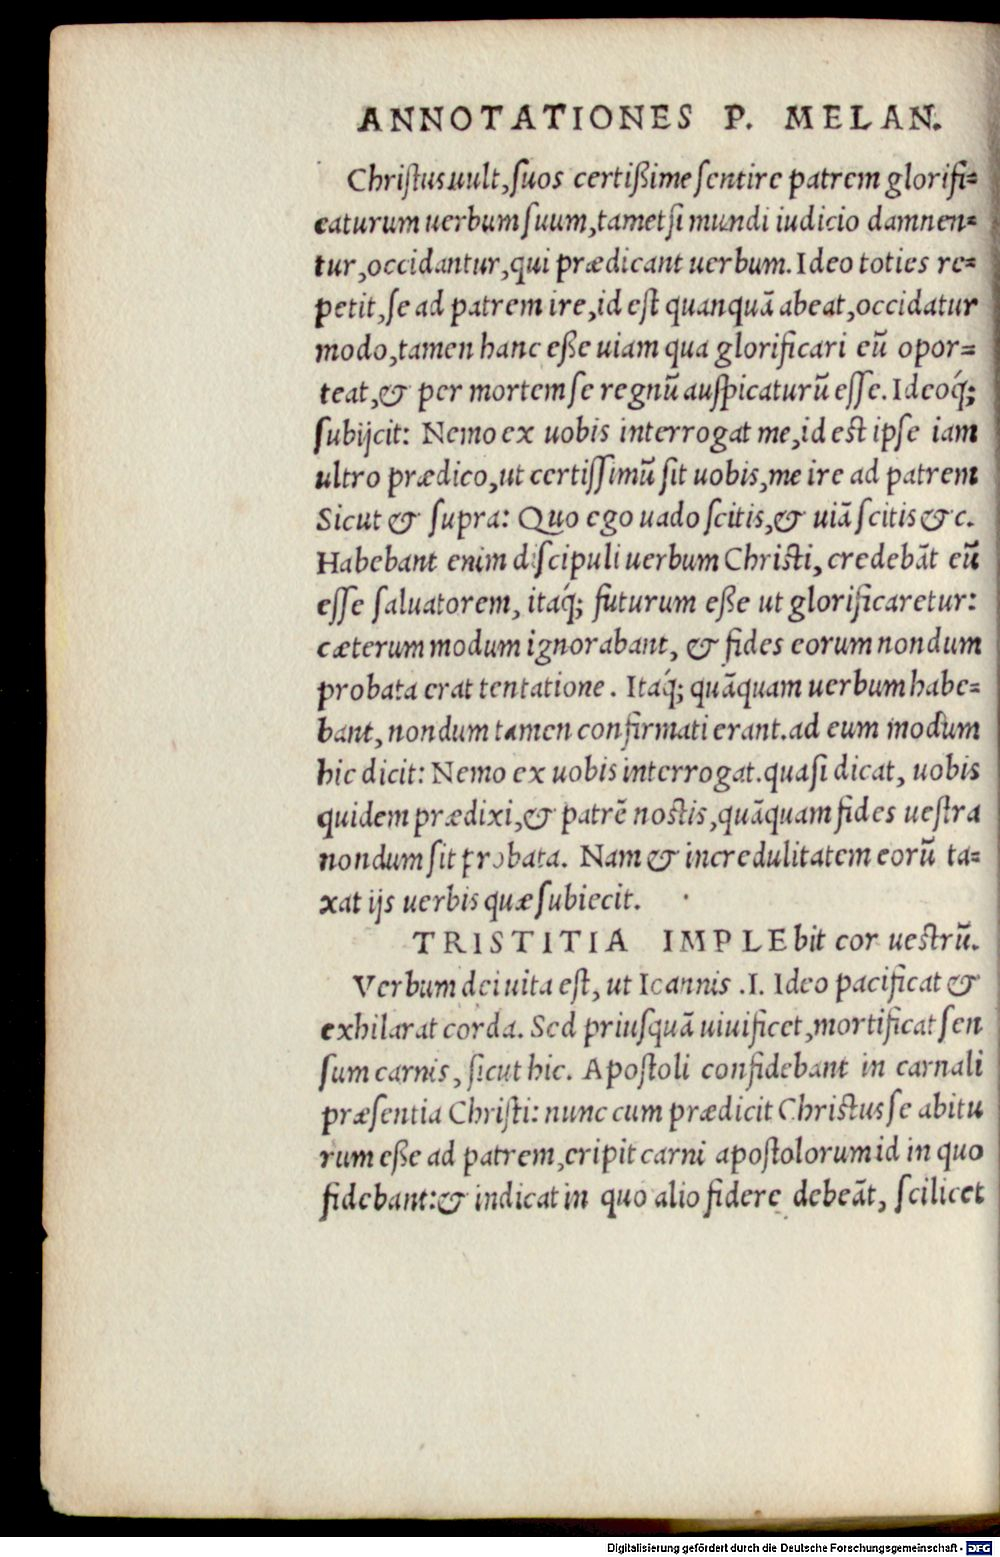 ANNOTATIONES P. MELAN.
Christus uult, suos certißime sentire patrem glorifi=
caturum uerbum suum, tametsi mundi iudicio damnen=
tur, occidantur, qui prædicant uerbum. Ideo toties re=
petit, se ad patrem ire, id est quanquā abeat, occidatur
modo, tamen hanc eße uiam qua glorificari eū opor=
teat, & per mortem se regnū auspicaturū esse. Ideoq́;
subijcit: Nemo ex uobis interrogat me, id est ipse iam
ultro prædico, ut certissimū sit uobis, me ire ad patrem
Sicut & supra: Quo ego uado scitis, & uiā scitis & c.
Habebant enim discipuli uerbum Christi, credebāt eū
esse saluatorem, itaq́; futurum eße ut glorificaretur:
cæterum modum ignorabant, & fides eorum nondum
probata erat tentatione. Itaq́; quāquam uerbum habe=
bant, nondum tamen confirmati erant. ad eum modum
hic dicit: Nemo ex uobis interrogat. quasi dicat, uobis
quidem prædixi, & patrē nostis, quāquam fides uestra
nondum sit probata. Nam & incredulitatem eorū ta=
xat ijs uerbis quæ subiecit.
TRISTITIA IMPLEbit cor uestrū.
Verbum dei uita est, ut Ioannis .I. Ideo pacificat &
exhilarat corda. Sed priusquā uiuificet, mortificat sen
sum carnis, sicut hic. Apostoli confidebant in carnali
præsentia Christi: nunc cum prædicit Christus se abitu
rum eße ad patrem, eripit carni apostolorum id in quo
fidebant: & indicat in quo alio fidere debeāt, scilicet
Digitalisierung gefördert durch die Deutsche Forschungsgemeinschaft - DFG